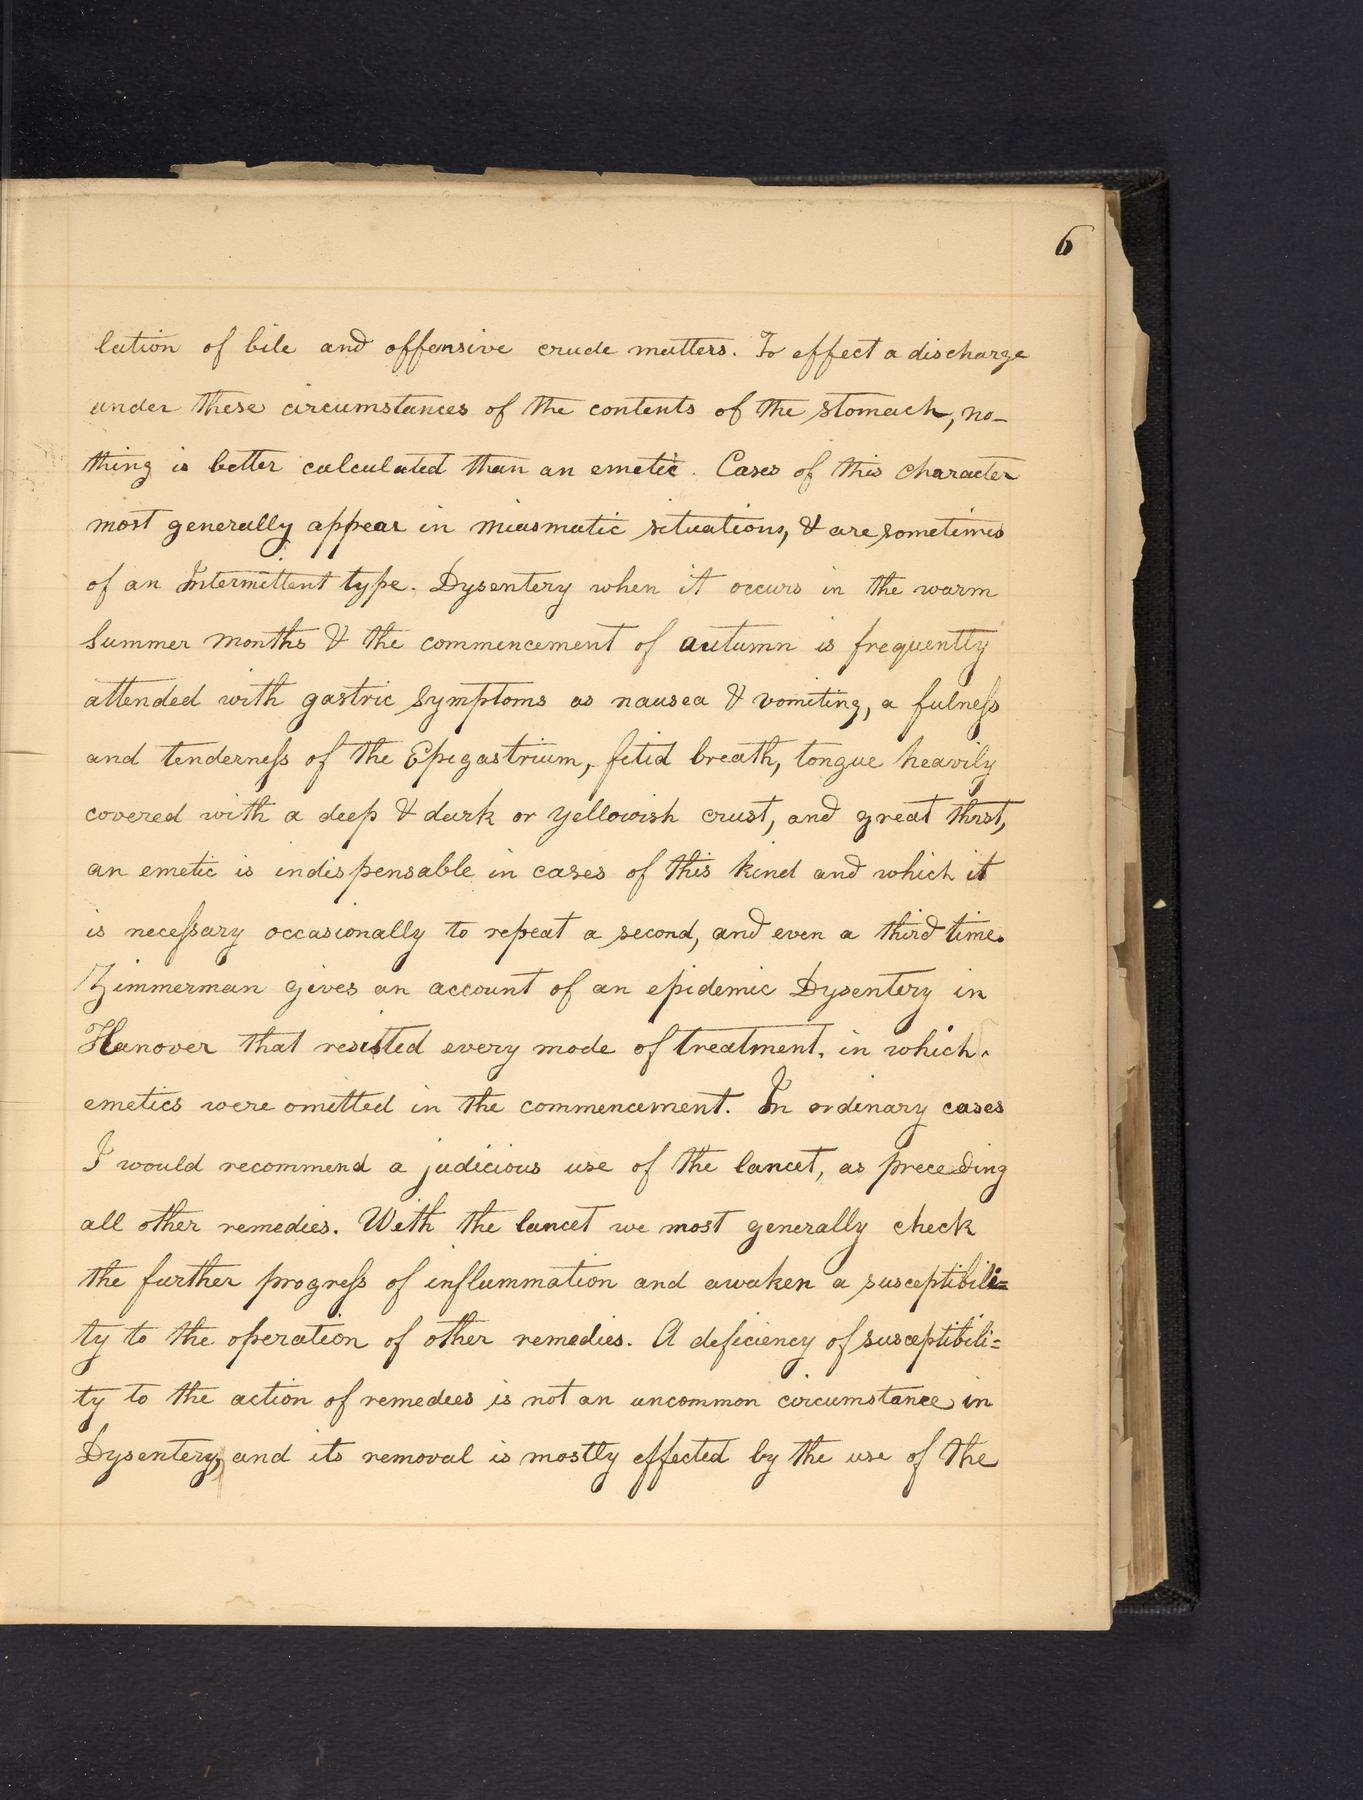 6
lation of bile and offensive crude matters. To effect a discharge
under these circumstances of the contents of the stomach, no-
thing is better calculated than an emetic. Cases of this character
most generally appear in miasmatic situations, & are sometimes
of an Intermittent type. Dysentery when it occurs in the warm
Summer months & the commencement of autumn is frequently
attended with gastric symptoms as nausea & vomiting, a fulness
and tenderness of the Epigastrium, fetid breath, tongue heavily
covered with a deep & dark or yellowish crust, and great thirst,
an emetic is indispensable in cases of this kind and which it
is necessary occasionally to repeat a second, and even a third time.
Zimmerman gives an account of an epidemic Dysentery in
Hanover that resisted every mode of treatment, in which
emetics were omitted in the commencement. In ordinary cases
I would recommend a judicious use of the lancet, as preceding
all other remedies. With the lancet we most generally check
the further progress of inflammation and awaken a susceptibili=
ty to the operation of other remedies. A deficiency of susceptibili=
ty to the action of remedies is not an uncommon circumstance in
Dysentery, and its removal is mostly effected by the use of the